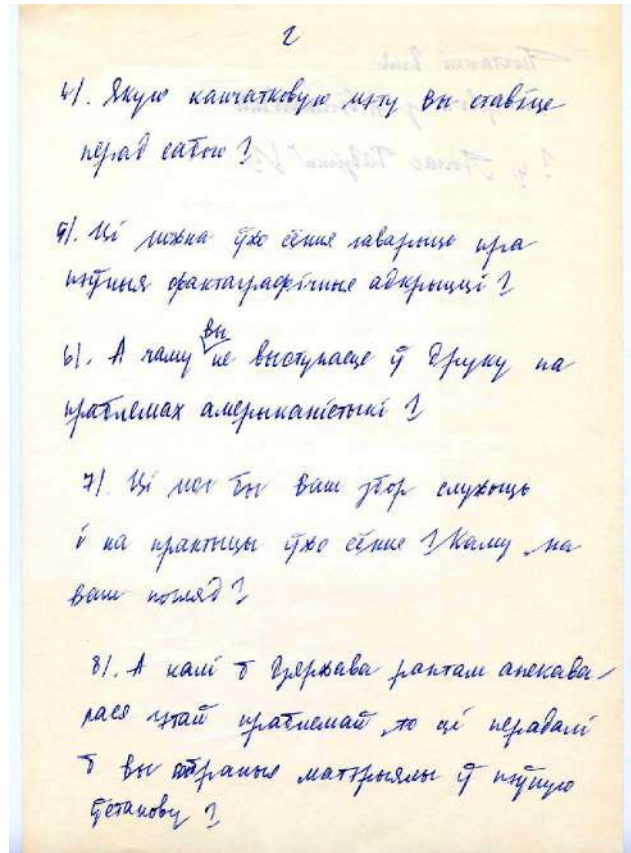 2
4/. Якую канчатковую мэту вы ставіце
перад сабою?
5/. Ці можна ўжо сёння гаварыць пра
пэўныя фактаграфічныя адкрыцці?
6/. А чаму вы не выступаеце ў друку па
праблемах амерыканістыкі?
7/. Ці мог бы ваш збор служыць
і на практыцы ўжо сёння? Каму, на
ваш погляд?
8/. А калі б дзяржава раптам апекава-
лася гэтай праблемай, то ці перадалі
б вы сабраныя матэрыялы ў пэўную
ўстанову?